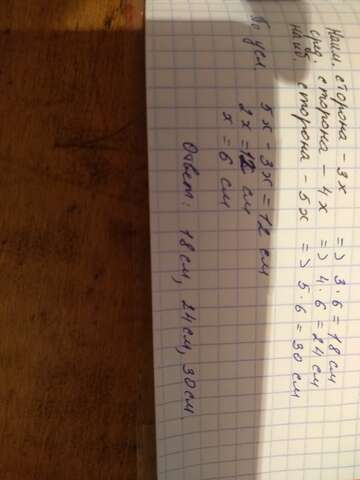 Наим. сторона - 3x => 3·6 = 18 см
сред. сторона - 4x => 4·6 = 24 см
наиб. сторона - 5x => 5·6 = 30 см
По усл. 5x - 3x = 12 см
2x = 12 см
x = 6 см
Ответ: 18 см, 24 см, 30 см.